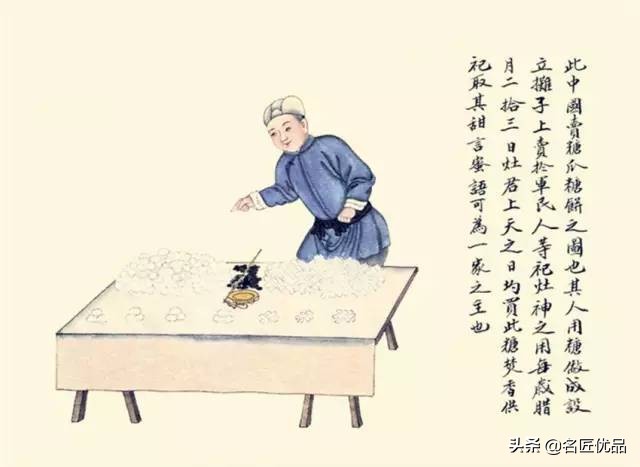 此中國賣糖瓜糖餅之圖也其人用糖做成設
立攤子上賣於軍民人等祀灶神之用每歲腊
月二拾三日灶君上天之日均買此糖焚香供
祀取其甜言蜜語可為一家之主也
头条 @名匠优品